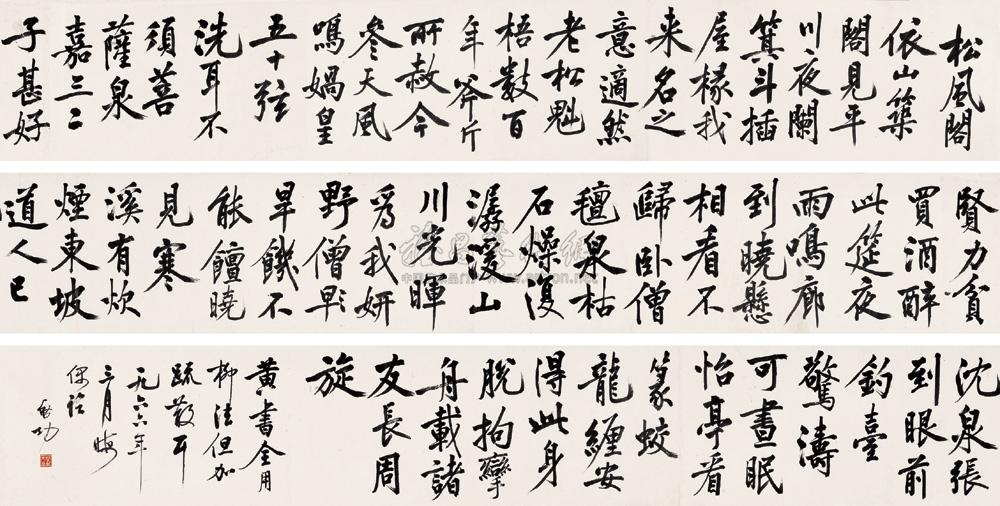 松風閣
依山築
閣見平
川夜闌
箕斗插
屋椽我
来名之
意適然
老松魁
梧數百
年斧斤
所赦今
參天風
鳴媧皇
五十弦
洗耳不
須菩
薩泉
嘉三二
子甚好
賢力貧
買酒醉
此筵夜
雨鳴廊
到曉懸
相看不
歸卧僧
氊泉枯
石燥復
潺湲山
川光暉
爲我妍
野僧早
旱饑不
能饘曉
見寒
溪有炊
煙東坡
道人已
沈泉張
到眼前
釣臺
驚濤
可晝眠
怡亭看
篆蛟
龍纏安
得此身
脫拘攣
舟載諸
友長周
旋
黄書全用
柳法但加
疏散耳
一九六六年
三月晦
啟功